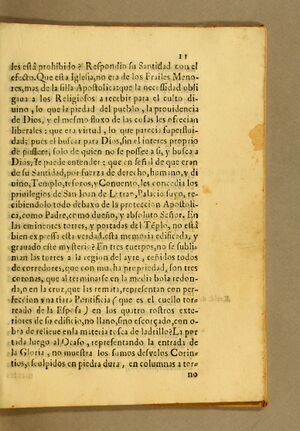 11
les està prohibido? Respondiò su Santidad con el
efecto. Que esta Iglesia, no era de los Frailes Meno-
res, mas de la silla Apostolica: que la necessidad obli
gaua a los Religiosos a recebir para el culto di-
uino, lo que la piedad del pueblo, la prouidencia
de Dios, y el mesmo fluxo de las cosas les ofrecian
liberales; que era virtud, lo que parecia superflui-
dad; pues el buscar para Dios, sin el interes proprio
de posseer, solo de quien no se possee a sì, y busca a
Dios, se puede entender; que en señal de que eran
de su Santidad, por fuerça de derecho, humano, y di
uino, Templo, tesoros, y Conuento, les concedia los
priuilegios de San Iuan de Letran, Palacio suyo, re-
cibiendolo todo debaxo de la proteccion Apostoli-
ca, como Padre, como dueño, y absoluto Señor. En
las eminentes torres, y portadas del Tẽplo, no está
bien expossita esta verdad, esta memoria edificada, y
grauado este mysterio? En tres cuerpos, no se sublima-
n las torres a la region del ayre, ceñidos todos
de corredores, que con mucha propriedad, son tres
coronas, que al terminarse en la media bola redon-
da, en la cruz, que las remata, representan con per-
feccion vna tiara Pontificia (que es el cuello tor-
reado de la Esposa) en los quatro rostros exte-
riores de su edificio, no llano, sino escorçado, con o-
bra de relieue en la materia tosca de ladrillo? La por
tada luego al Ocaso, representando la entrada de
la Gloria, no muestra los sumos desvelos Corin-
tios, esculpidos en piedra dura, en columnas a tor-
no